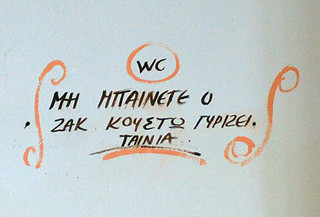 WC
ΜΗ ΜΠΑΙΝΕΤΕ Ο
ΖΑΚ ΚΟΥΣΤΩ ΓΥΡΙΖΕΙ.
ΤΑΙΝΙΑ